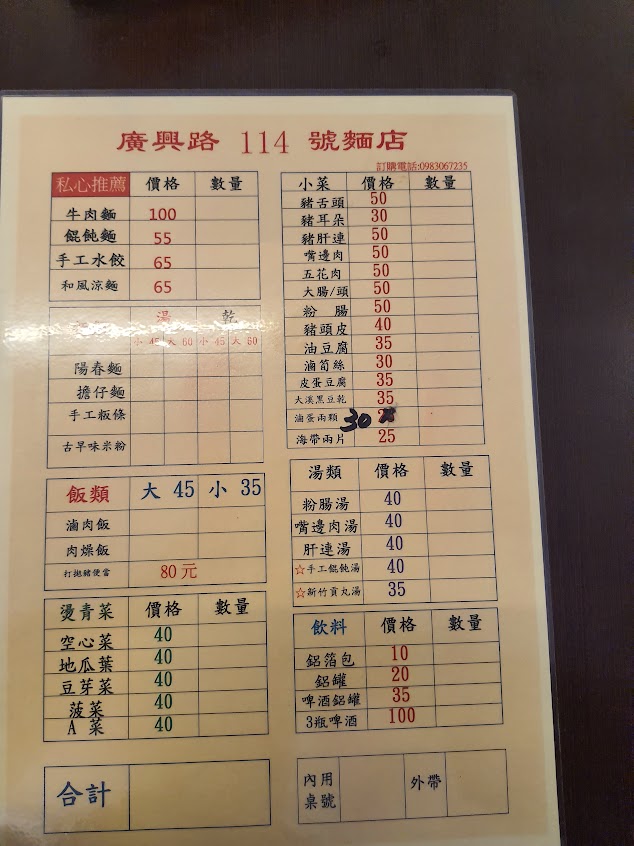 廣興路 114 號麵店
訂購電話:0983067235
私心推薦 價格 數量
牛肉麵 100
餛飩麵 55
手工水餃 65
和風涼麵 65
湯 乾
小 45 大 60 小 45 大 60
陽春麵
擔仔麵
手工粄條
古早味米粉
飯類 大 45 小 35
滷肉飯
肉燥飯
打拋豬便當 80 元
燙青菜 價格 數量
空心菜 40
地瓜葉 40
豆芽菜 40
菠菜 40
A 菜 40
合計
小菜 價格 數量
豬舌頭 50
豬耳朵 30
豬肝連 50
嘴邊肉 50
五花肉 50
大腸/頭 50
粉 腸 50
豬頭皮 40
油豆腐 35
滷筍絲 30
皮蛋豆腐 35
大溪黑豆乾 35
滷蛋兩顆 30
海帶兩片 25
湯類 價格 數量
粉腸湯 40
嘴邊肉湯 40
肝連湯 40
☆手工餛飩湯 40
☆新竹貢丸湯 35
飲料 價格 數量
鋁箔包 10
鋁罐 20
啤酒鋁罐 35
3瓶啤酒 100
內用桌號 外帶